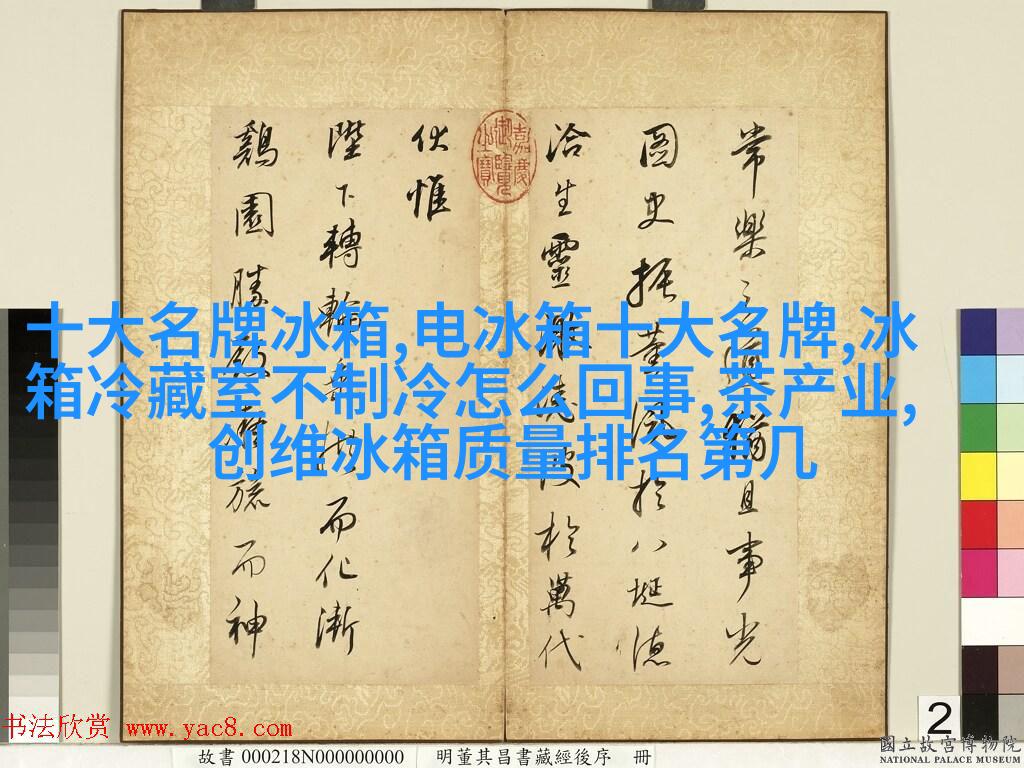 十大名牌冰箱,电冰箱十大名牌,冰
箱冷藏室不制冷怎么回事,茶产业,
创维冰箱质量排名第几
常樂之且事光
圖史振薰風於八埏德
洽生靈於萬代
伏惟
陛下轉輪而化漸
鷄園勝而神
嘉慶御覽之寶
2
书法欣赏 www.yac8.com
故書 000218N000000000 明董其昌書藏經後序 冊
國立故宮博物院
NATIONAL PALACE MUSEUM